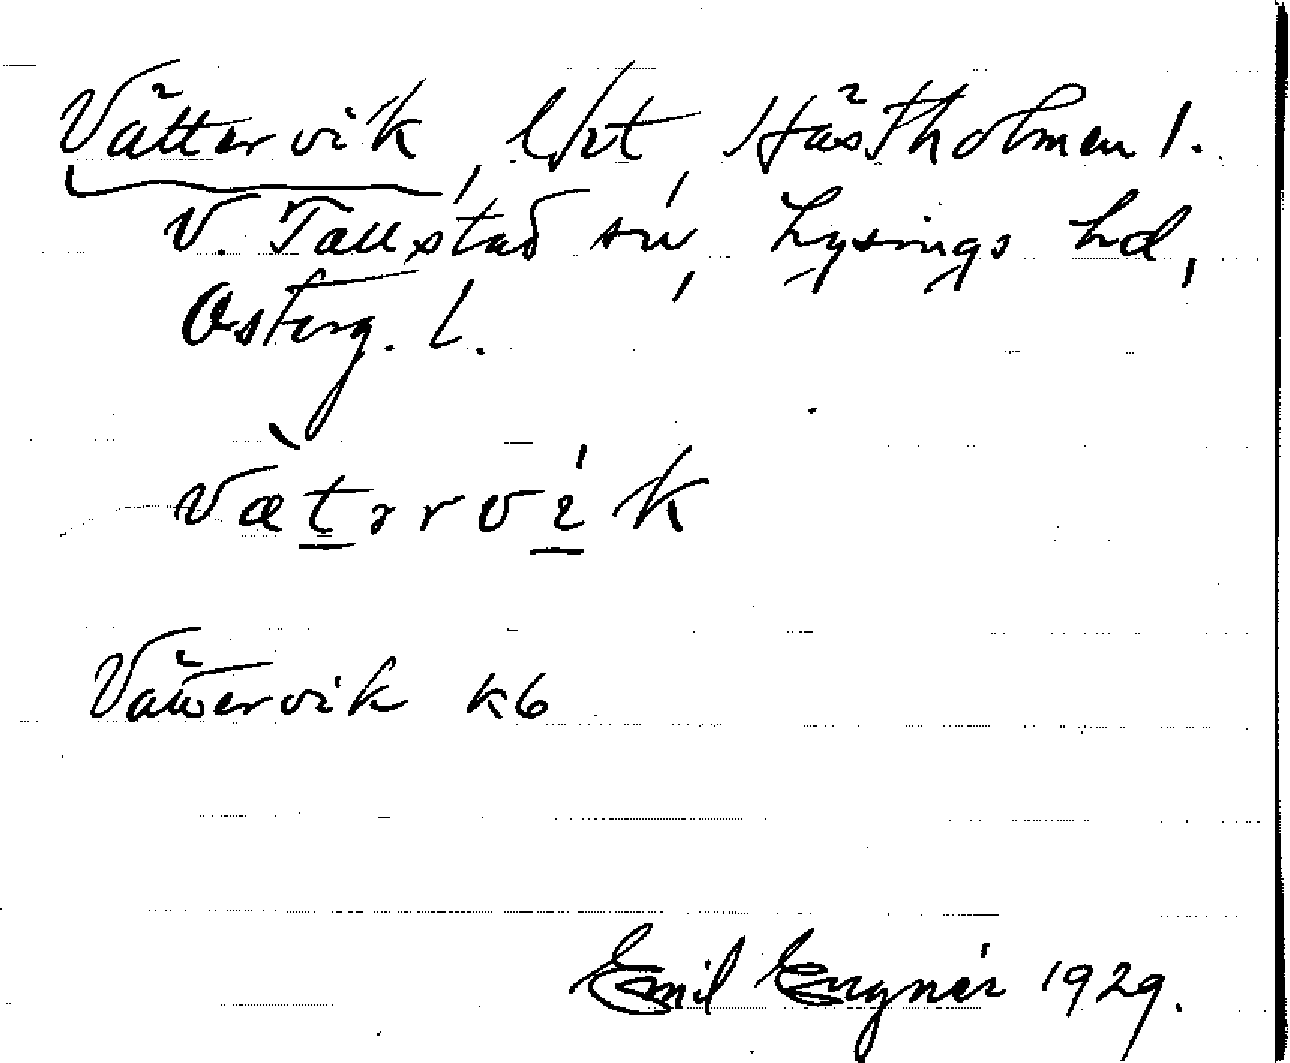 Vättervik, lht, Hästholmen 1.
V. Tollstad sn, Lysings hd,
Österg. l.
vætrrvik
Vättervik kb
Emil Engnér 1929.